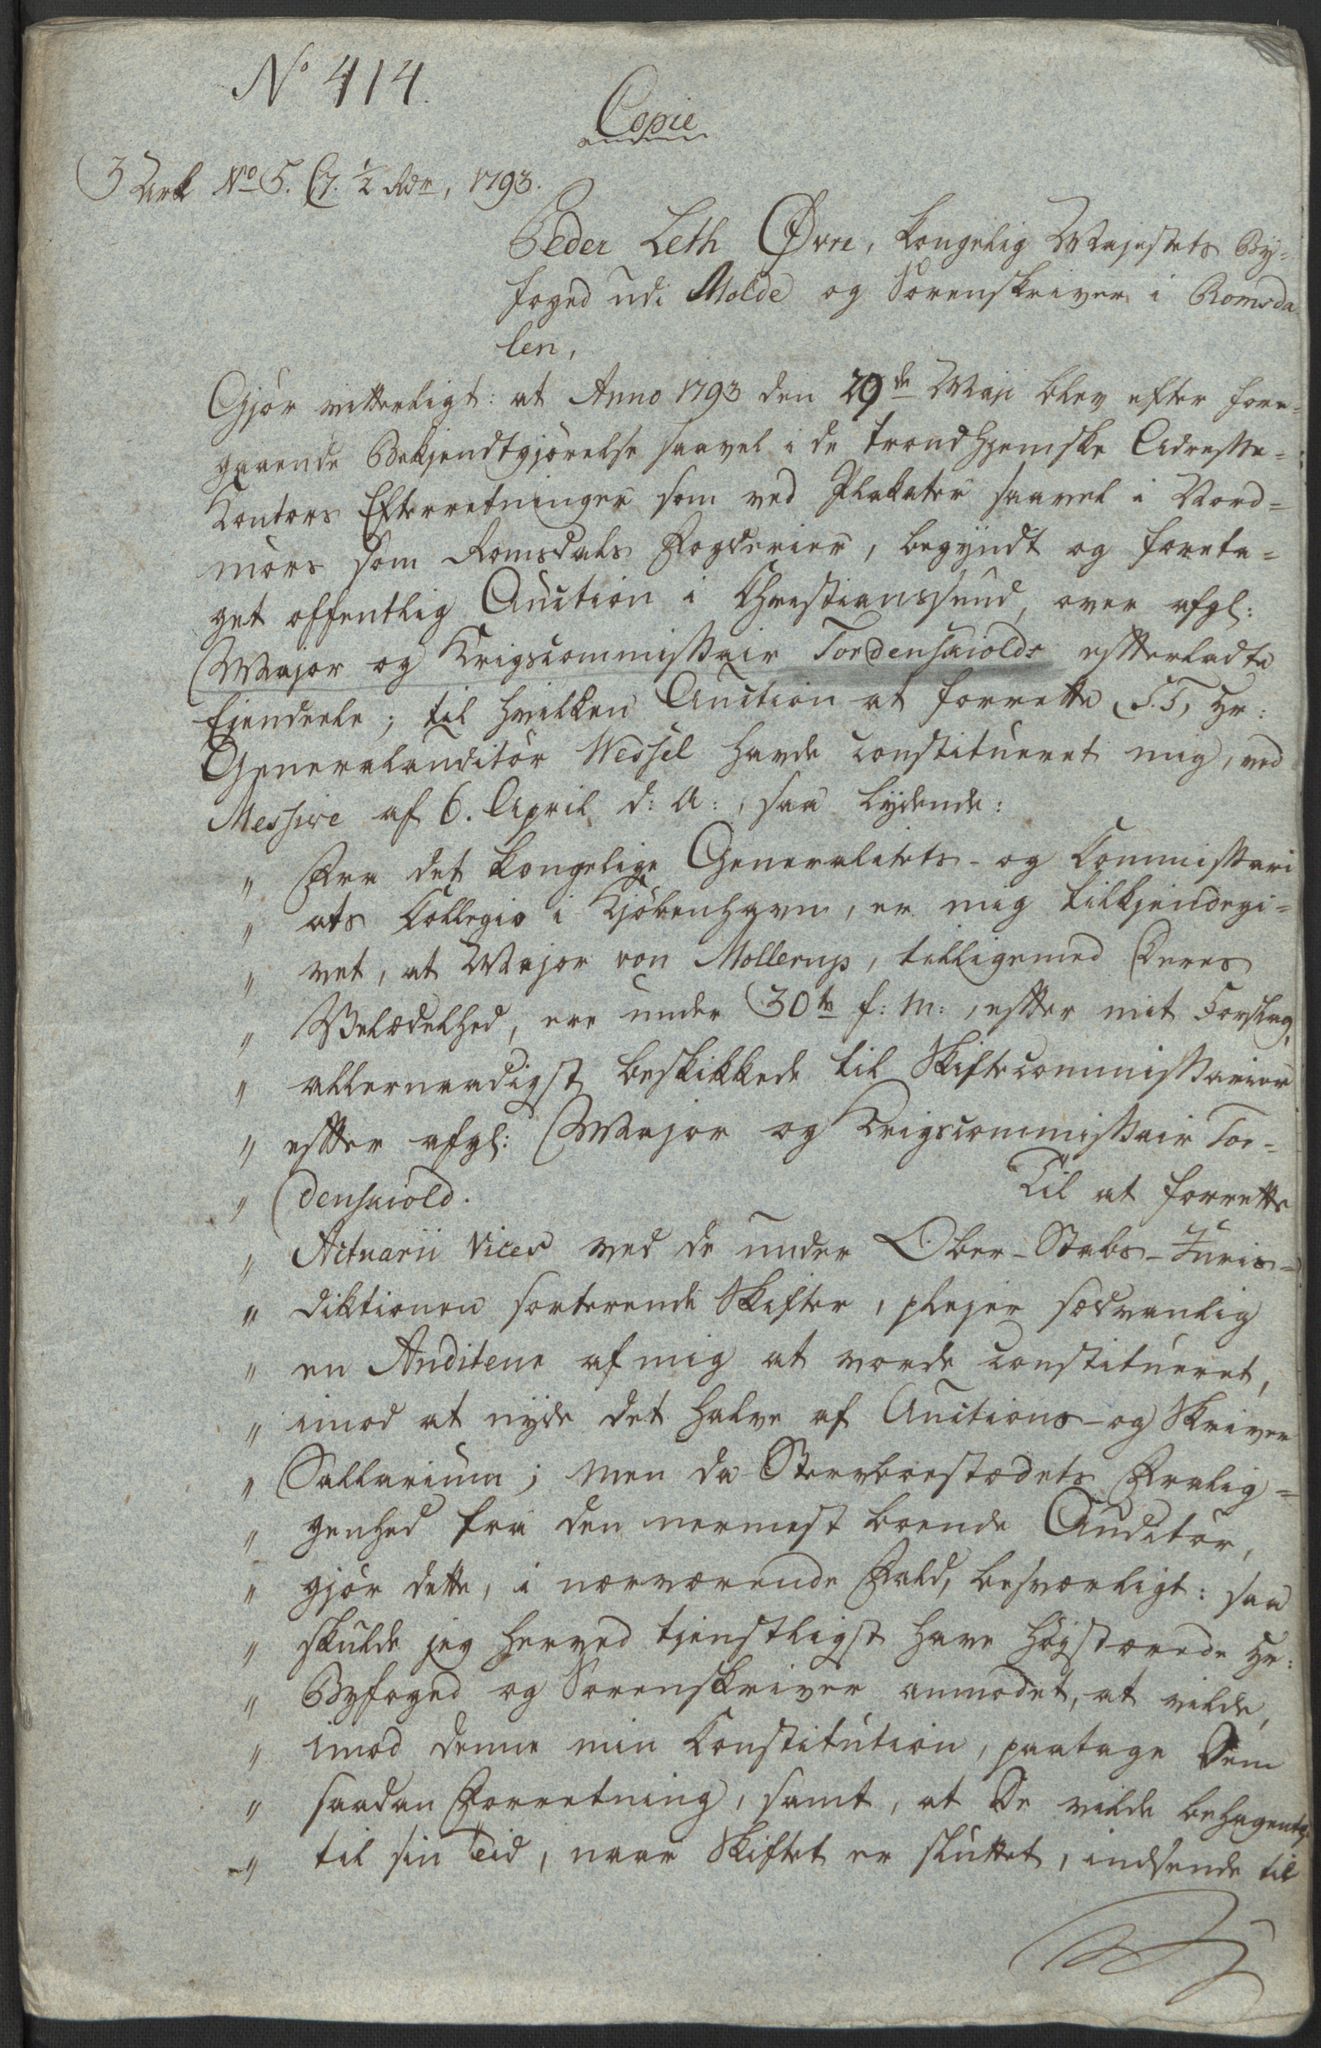 No 414.
Copie
3 Ark No 5. C. 7. ½ Rdr, 1793.
Peder Leth Øvre, Kongelig Majestets By-
foged udi Molde og Sorenskriver i Romsda
len,
Gjør vitterligt: at Anno 1793 den 29de Maji blev efter fore-
gaaende Bekjendtgjørelse saavel i de trondhjemske Adresse-
Kontors Efterretninger som ved Plakater saavel i Nord-
mørs som Romsdals Fogderier, begyndt og foreta-
get offentlig Auction i Christianssund, over afgl:
Major og Krigscommissair Tordenskiolds efterladte
Ejendeele; til hvilken Auction at forrette S. T. Hr:
Generalauditør Wessel havde constitueret mig, ved
Messive af 6. April d: A:, saa lydende:
" Fra det kongelige Generalitets- og Commissari
" ats Collegio i Kjøbenhavn, er mig tilkjendegi-
" vet, at Major von Mollerup, tilligemed Deres
" Velædelhed, ere under 30te f: M:, efter mit Forslag,
" allernaadigst beskikkede til Skiftecommissarier
" efter afgl: Major og Krigscommissair Tor-
" denskiold. Til at forrette
" Actuarii Vices ved de under Ober-Stabs-Juris-
" diktionen sorterende Skifter, plejer sædvanlig
" en Auditeur af mig at vorde constitueret,
" imod at nyde det halve af Auctions- og Skriver
" Sallarium; men da Stervboestædets Fralig-
" genhed fra den nermest boende Auditør,
" gjør dette, i nærværende Fald, besværligt: saa
" skulde jeg herved tjenstligst have høgstærede Hr:
" Byfoged og Sorenskriver anmodet, at vilde,
" imod denne min Constitution, paatage Dem
" saadan Forretning, samt, at De vilde behagentl:
" til sin Tid, naar Skiftet er sluttet, indsende til